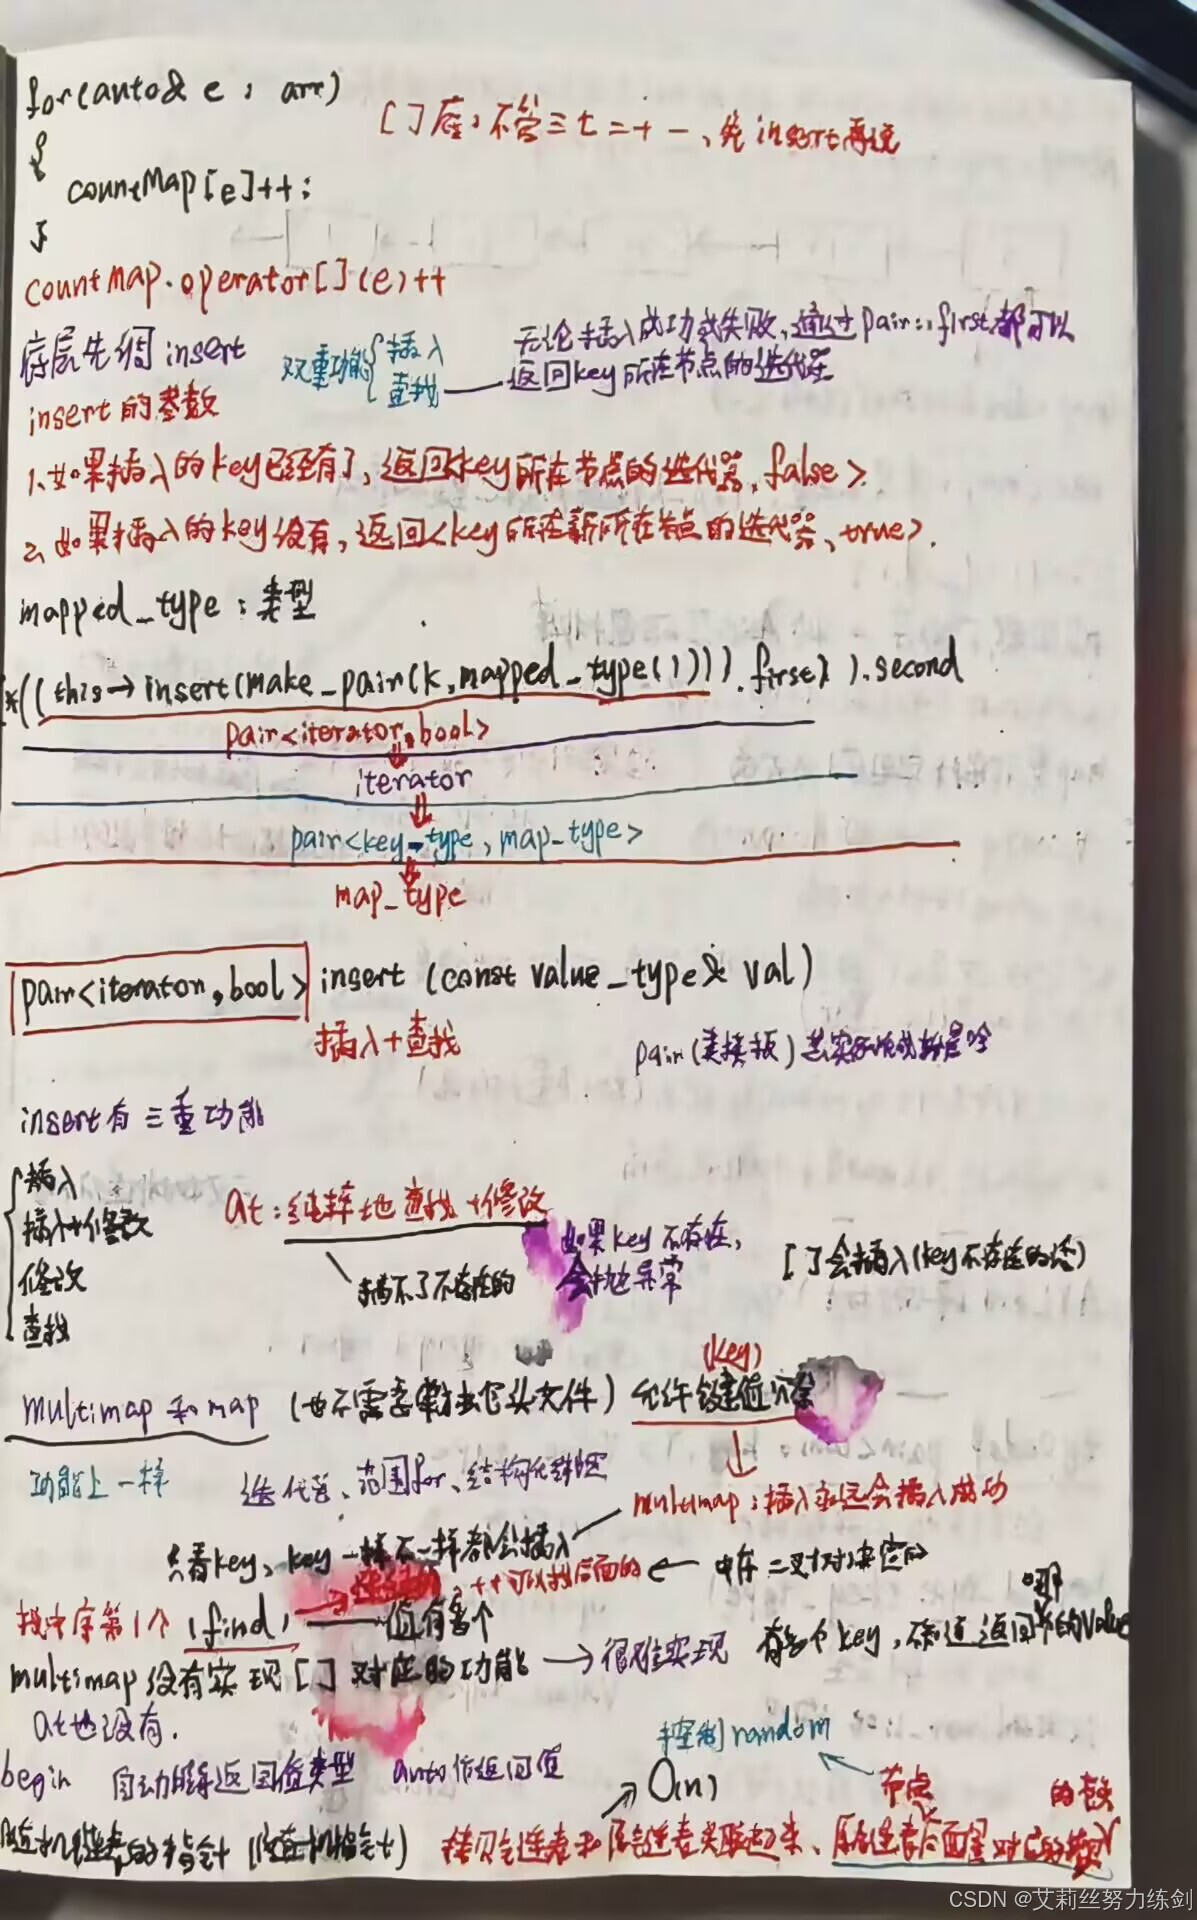 for(auto& e : arr)
[]底:不管三七=+-、先insert再说
{
countMap[e]++;
}
countMap.operator[](e)++
底层先调insert
双重功能{插入
查找
无论插入成功或失败,通过pair::first都可以
返回key所在节点的迭代器
insert的参数
1、如果插入的key已经有了,返回<key所在节点的迭代器,false>
2、如果插入的key没有,返回<key所在新所在节点的迭代器、true>.
mapped_type:类型
(*((this→insert(make_pair(k,mapped_type()))).first)).second
pair<iterator,bool>
iterator
pair<key_type,map_type>
map_type
pair<iterator,bool> insert (const value_type& val)
插入+查找
pair(类模板)
insert有三重功能
{插入
插入+修改
修改
查找
at:纯粹地查找+修改
插不了不存在的
如果key不存在,
会抛异常
[]会插入(key不存在的话)
(key)
multimap和map(也不需要单独包头文件)允许键值冗余
功能上一样
迭代器、范围for、结构化绑定
multimap:插入永远会插入成功
只看key、key一样不一样都会插入
++可以找后面的
找中序第1个(find)
值有多个
multimap没有实现[]对应的功能→很难实现
有多个key,不知道返回哪个的value
at也没有.
控制random
begin 自动推导返回值类型 auto作返回值
O(n)
节点
随机链表的指针(随机指针)
拷贝链表和原链表关联起来、
CSDN @艾莉丝努力练剑